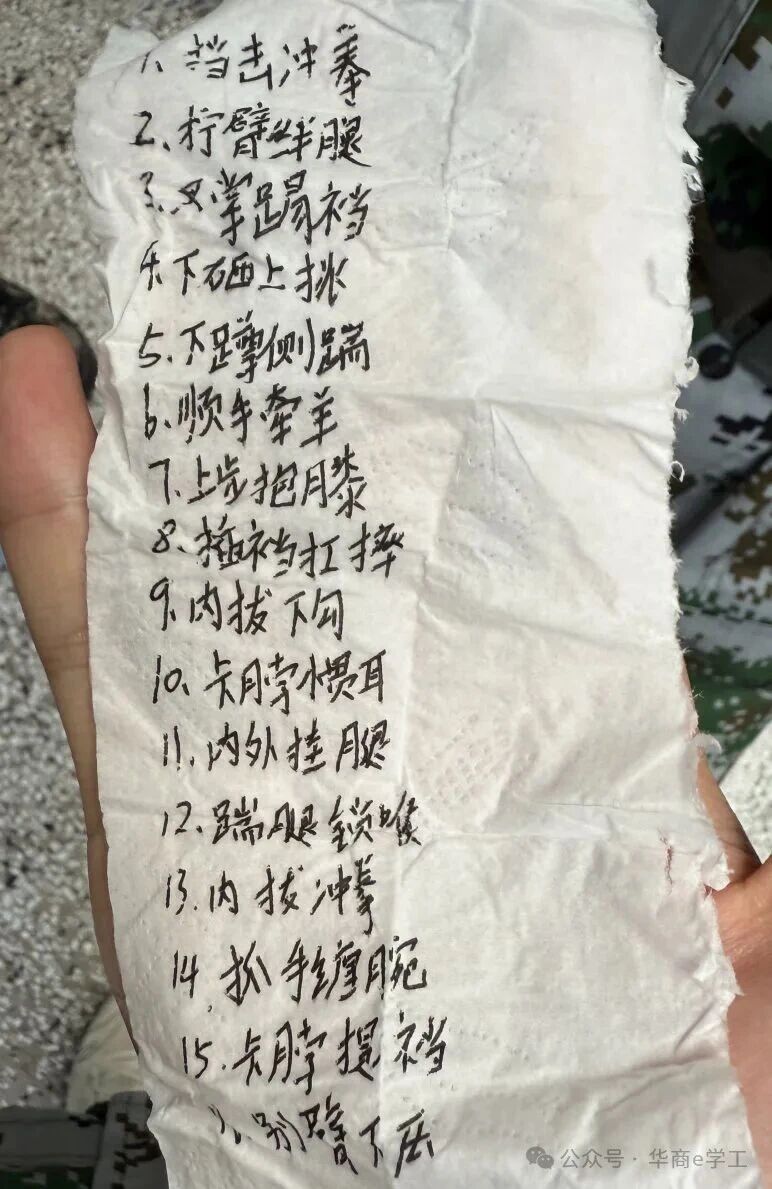 1、挡击冲拳
2、拧臂绊腿
3、叉掌踢裆
4、下砸上挑
5、下蹲侧踹
6、顺手牵羊
7、上步抱膝
8、插裆扛摔
9、内拔下勾
10、卡脖惯耳
11、内外挂腿
12、踹腿锁喉
13、内拔冲拳
14、抓手缠腕
15、卡脖提裆
别臂下压
公众号·华商e学工